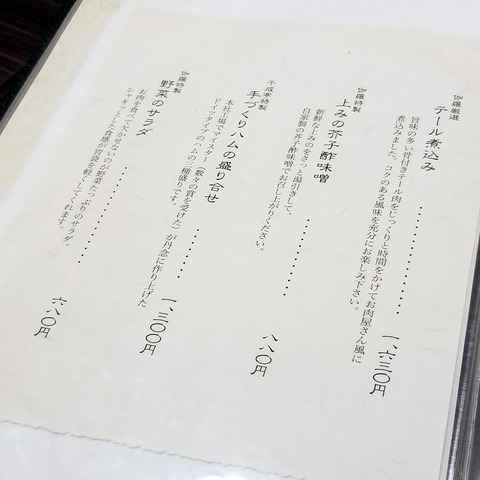 伽羅厳選
テール煮込み
一、六三〇円
旨味の多い骨付きテール肉をじっくりと時間をかけてお肉屋さん風に
煮込みました。コクのある風味を充分にお楽しみ下さい。
伽羅特製
上みの芥子酢味噌
八八〇円
新鮮な上みのをさっと湯引きして、
自家製の芥子酢味噌でお召し上がりください。
千成亭特製
手づくりハムの盛り合せ
一、三〇〇円
本社工場でマイスター（数々の賞を受けた）が丹念に作り上げた
ドイツタイプのハムの三種盛りです。
伽羅特製
野菜のサラダ
六八〇円
お肉を食べて欠かせないのが野菜たっぷりのサラダ。
シャキッとした食感が胃袋を軽くしてくれます。